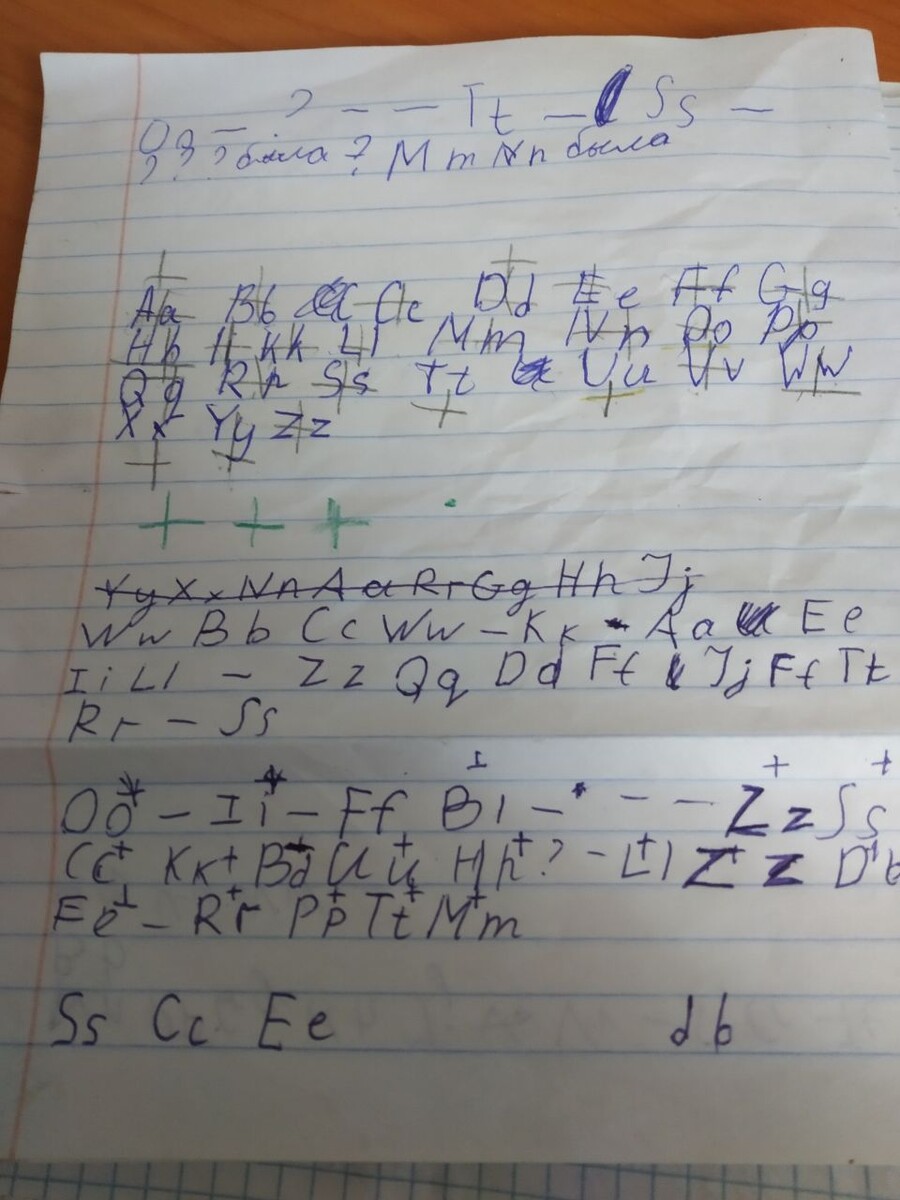 ? – – Tt – Ss –
Oq –
? ? ? была ? Mm Nn была
Aa Bb Cc Dd Ee Ff Gg
Hh Ii Kk Ll Mm Nn Oo Pp
Qq Rr Ss Tt Uu Vv Ww
Xx Yy Zz
+ + + .
Yy Xx Nn Aa Rr Gg Hh Jj
Ww Bb Cc Ww – Kk - Aa Ee
Ii Ll – Zz Qq Dd Ff Jj Ff Tt
Rr – Ss
Oo – Ii – Ff Bl – – – Zz Ss
Cc Kk Bd Uu Hh ? – Ll Zz Db
Ee – Rr Pp Tt Mm
Ss Cc Ee db